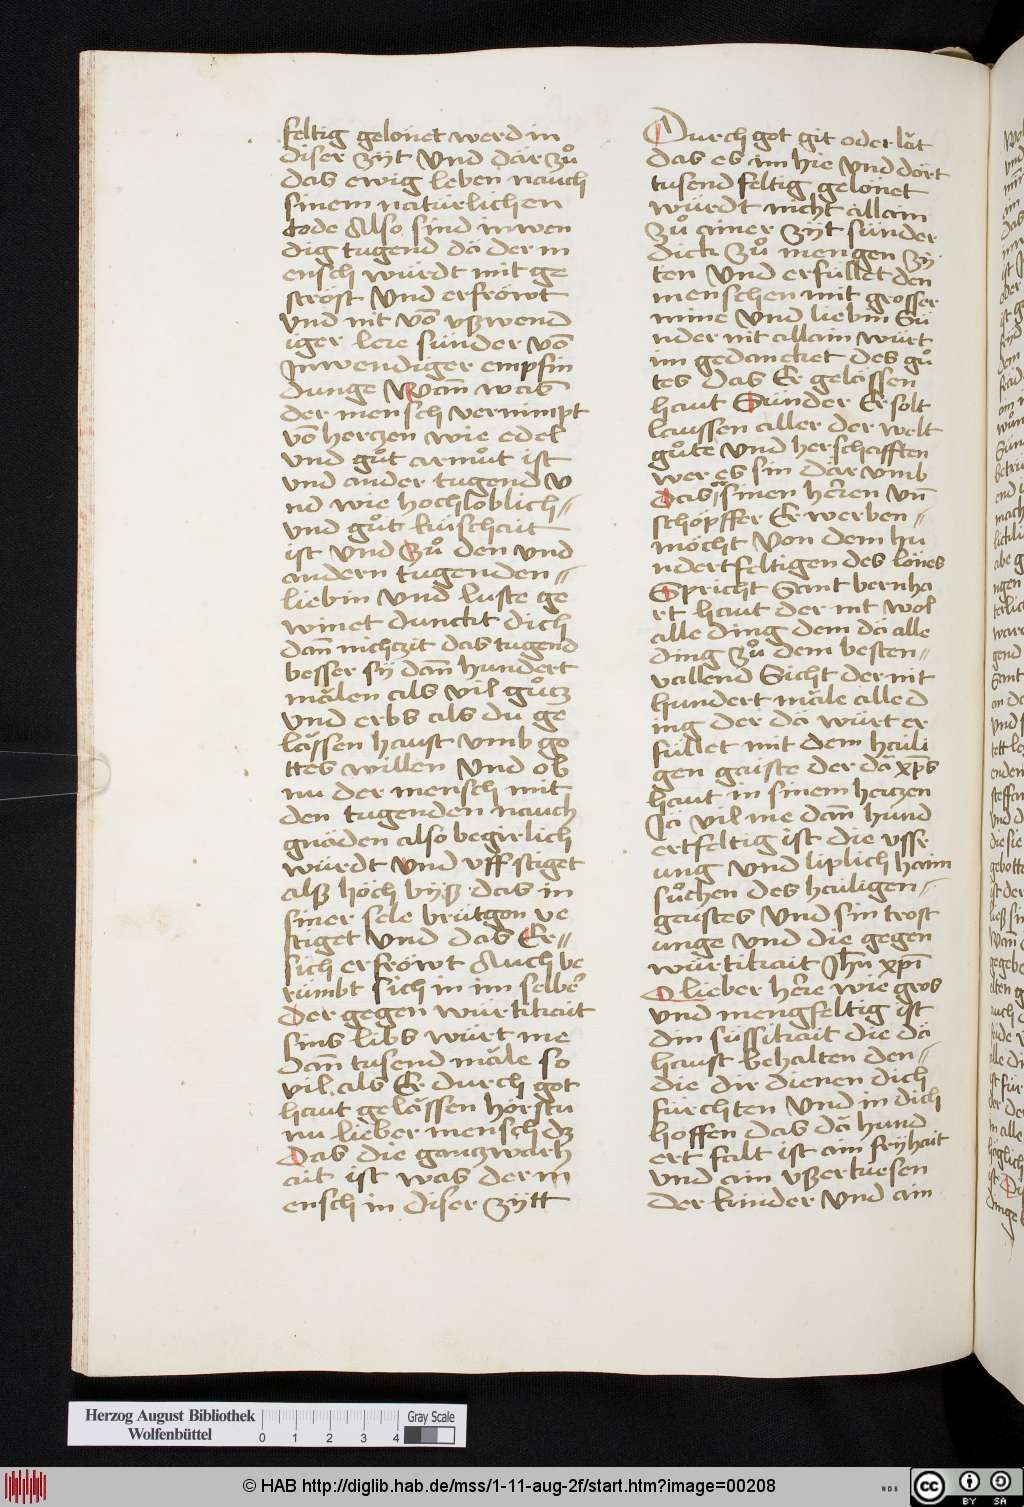 feltig gelönet werd in
diser zÿt Vnd där zuͦ
das ewig leben nauch
sinem natürlichen
tode Also sind inwen
dig tugend dä der m
ensch würdt mit ge
ströst Vnd erfröwt
Vnd nit vō vßwend
iger lere sünder vō
Inwendiger empfin
dunge Wañ was
der mensch vernimpt
vō hertzen wie edel
vnd guͦt armuͦt ist
vnd ander tugend v
nd wie hochloblich〃
vnd guͦt küschait
ist vnd Zuͦ den vnd
andern tugenden〃
liebin vnd luste ge
winet dunckt dich
dañ nichzit das tugend
besser sÿ dañ hundert
mälen als vil guͦtz
vnd erbs als du ge
lässen haust vmb go
ttes willen Vnd ob
nu der mensch mit
den tugenden nauch
gnäden also begirlich
würdt vnd vff stiget
alß höch byß das in
siner sele brütgon ve
stiget vnd das Er〃
sich erfröwt Auch be
rümbt sich in im selber
Der gegen würtikait
sins libs würt me
dañ tusend mäle so
vil als Er durch got
haut gelässen hörstu
nu lieber mensch dz
Das die gantz warh
ait ist was der m
ensch in diser zÿtt
Durch got git oder lät
das es im hie vnd dört
tusend feltig gelönet
würdt nicht allain
Zuͦ ainer zÿt sünder
dick zuͦ mengen zÿ
ten Vnd erfüllet den
menschen mit grosser
mine Vnd liebin Sü
nder nit allain würt
im gedancket des guͦ
tes das Er gelässen
haut Sunder Er solt
laussen aller der welt
guͦte vnd herschafften
wer es sin dar vmb
das sinen herren vñ
schöpffer Er werben〃
möcht Von dem hu
ndertfeltigen des lönes
Spricht Sant bernha
rt haut der nit wol
alle ding dem dä alle
ding zuͦ dem besten〃
vallend Sicht der nit
hundert mäle alle d
ing der dä würt er
füllet mit dem haili
gen gaiste der dä xp̄s
haut in sinem hertzen
Jä vil me dañ hund
ertfeltig ist die vssr
ung vnd liplich haim
suͦchen des hailigen〃
gaistes Vnd sin trost
unge vnd die gegen
würtikait Jh̄u xp̄i
O lieber herre wie gros
vnd mengfeltig ist
din süssikait die dä
haust behalten den〃
die dir dienen dich
fürchten Vnd in dich
hoffen das dä hund
ert falt ist ain frÿhait
vnd ain vßerkiesen
der kinder vnd ain
Herzog August Bibliothek
Wolfenbüttel
0 1 2 3 4
Gray Scale
© HAB http://diglib.hab.de/mss/1-11-aug-2f/start.htm?image=00208
WDB
cc BY SA